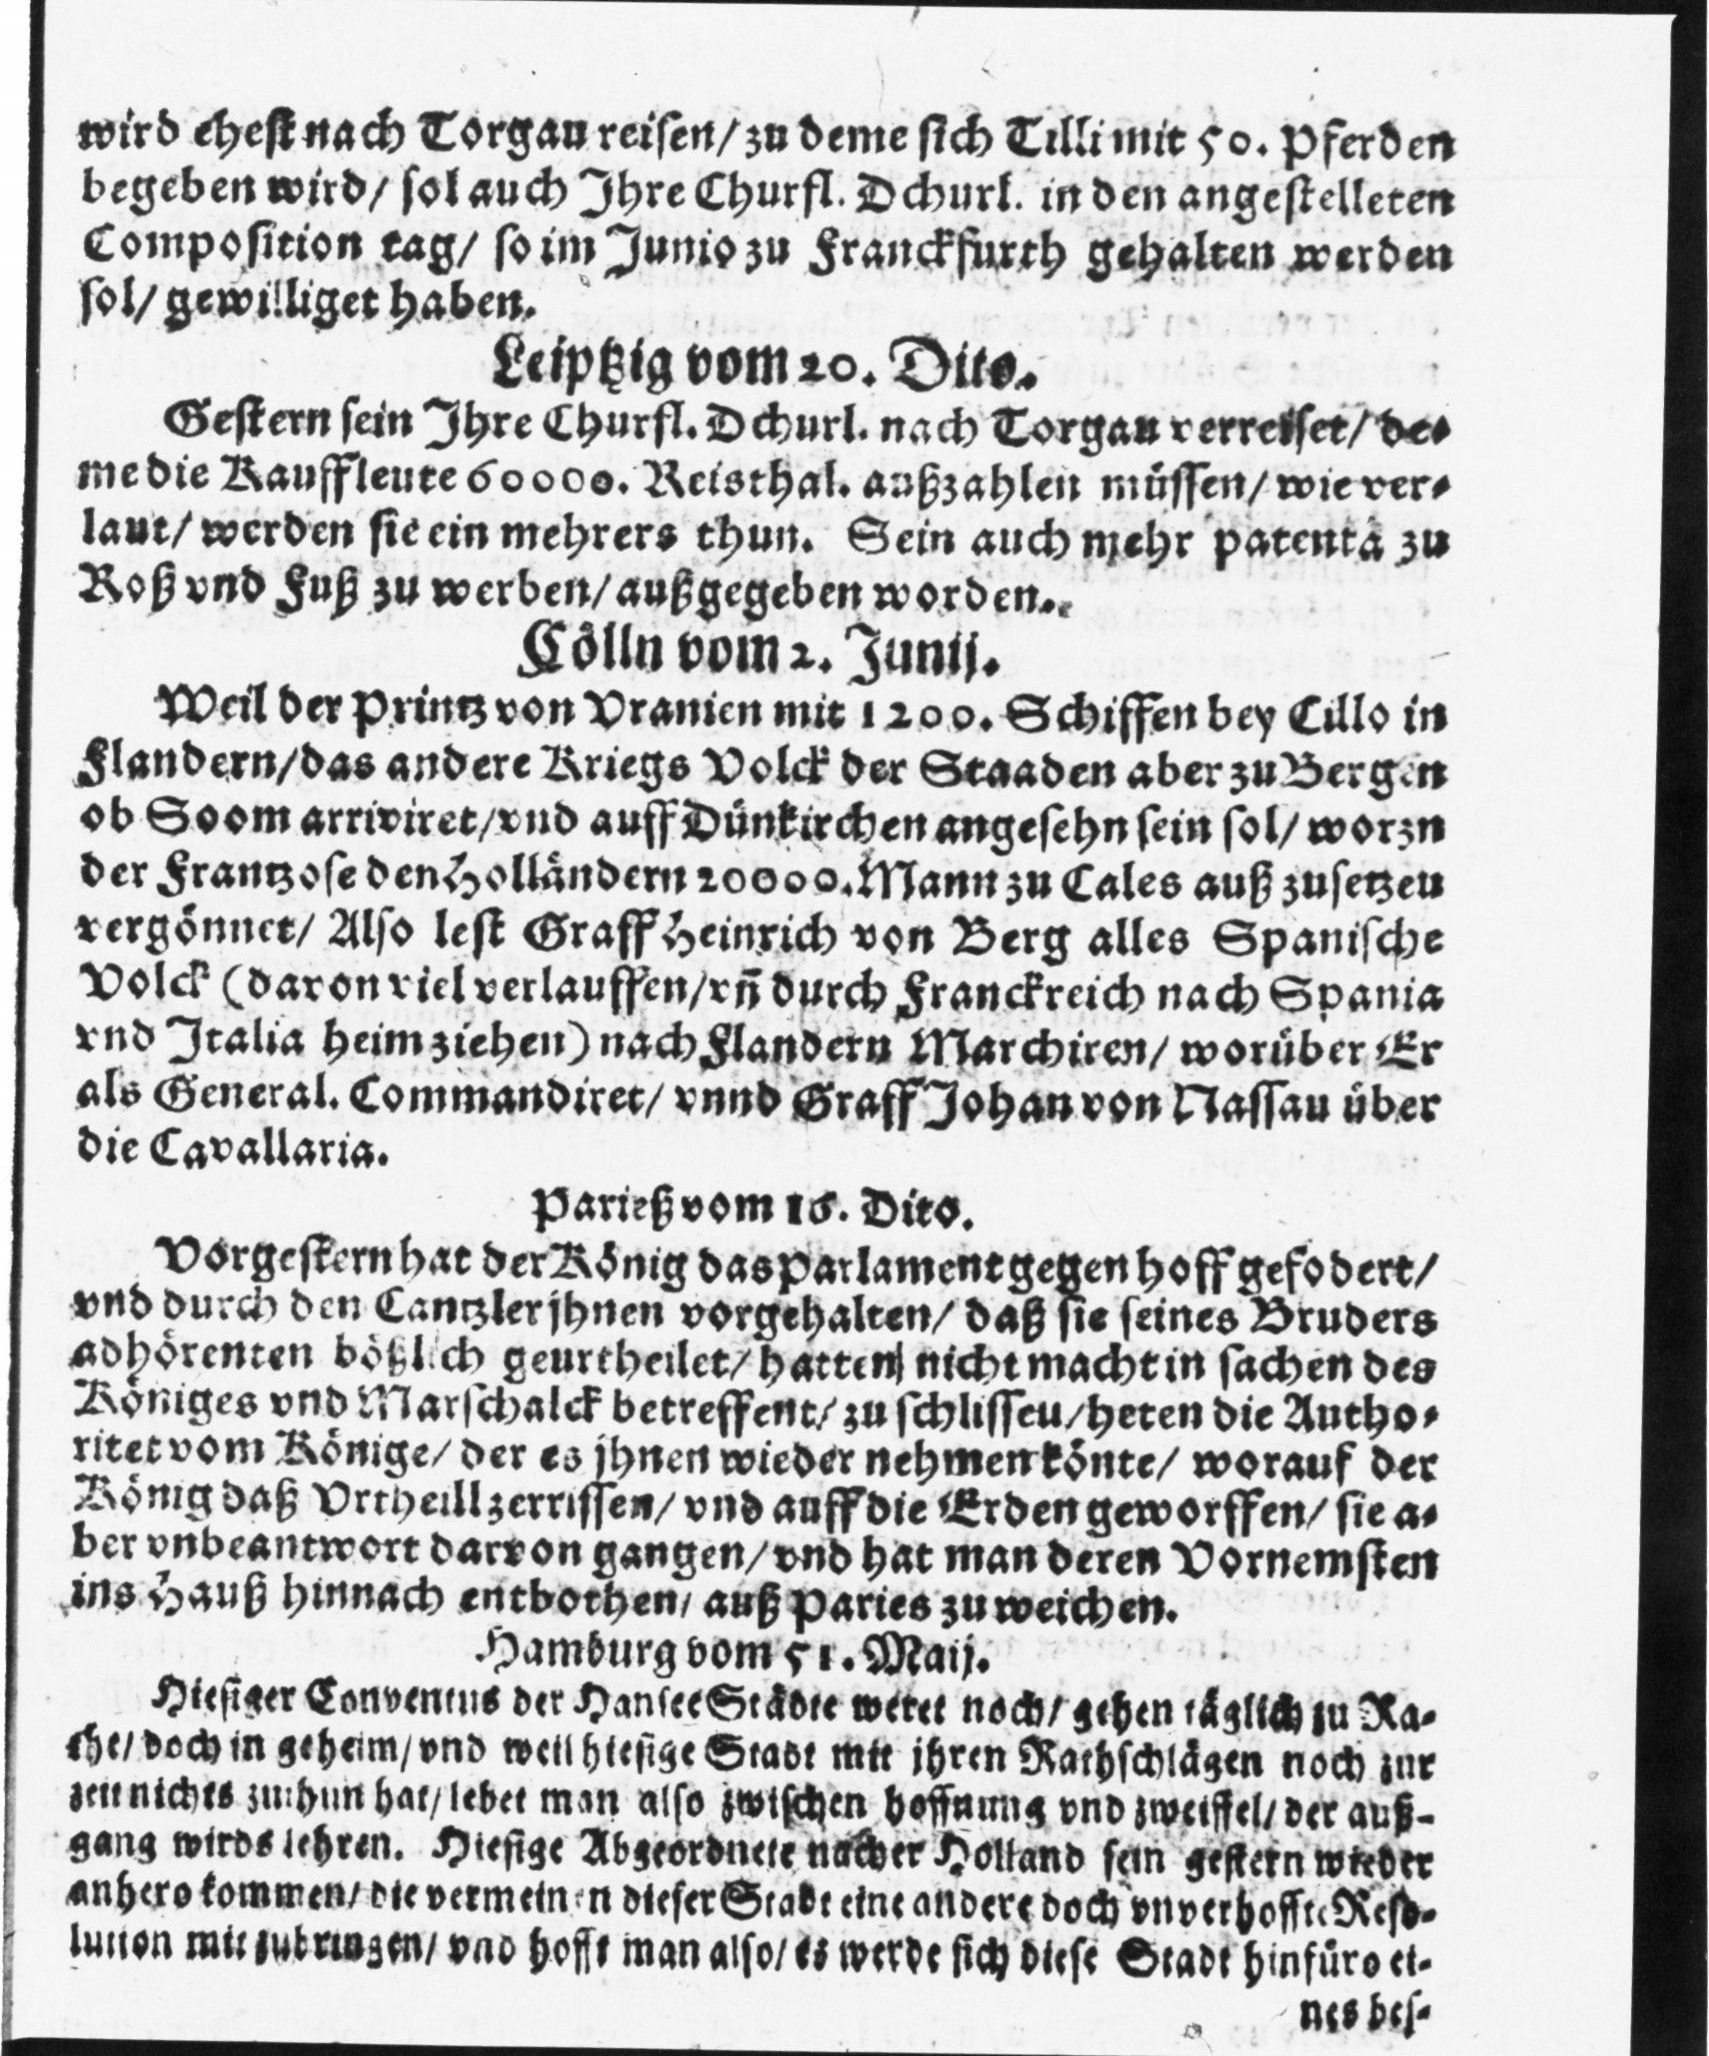 wird ehest nach Torgau reisen/ zu deme sich Tilli mit 50. Pferden
begeben wird/ sol auch Ihre Churfl. Dchurl. in den angestelleten
Composition tag/ so im Junio zu Franckfurth gehalten werden
sol/ gewilliget haben.
Leiptzig vom 20. Dito.
Gestern sein Ihre Churfl. Dchurl. nach Torgau verreiset/ de-
me die Kauffleute 60000. Reisthal. außzahlen müssen/ wie ver-
laut/ werden sie ein mehrers thun. Sein auch mehr patenta zu
Roß vnd Fuß zu werben/ außgegeben worden.
Cölln vom 2. Junij.
Weil der Printz von Vranien mit 1200. Schiffen bey Cillo in
Flandern/ das andere Kriegs Volck der Staaden aber zu Bergen
ob Soom arriviret/ vnd auff Dünkirchen angesehn sein sol/ worzn
der Frantzose den Holländern 20000. Mann zu Cales auß zusetzen
vergönnet/ Also lest Graff Heinrich von Berg alles Spanische
Volck (darvon viel verlauffen/ vn̄ durch Franckreich nach Spania
vnd Italia heim ziehen) nach Flandern Marchiren/ worüber Er
als General. Commandiret/ vnnd Graff Johan von Nassau über
die Cavallaria.
Parieß vom 16. Dito.
Vorgestern hat der König das Parlament gegen hoff gefodert/
vnd durch den Cantzler jhnen vorgehalten/ daß sie seines Bruders
adhörenten bößlich geurtheilet/ hatten nicht macht in sachen des
Königes vnd Marschalck betreffent/ zu schlissen/ heten die Autho-
ritet vom Könige/ der es jhnen wieder nehmen könte/ worauf der
König daß Vrtheill zerrissen/ vnd auff die Erden geworffen/ sie a-
ber vnbeantwort darvon gangen/ vnd hat man deren Vornemsten
ins Hauß hinnach entbothen/ auß Paries zu weichen.
Hamburg vom 51. Maij.
Hiesiger Conventus der Hansee Städte weret noch/ gehen täglich zu Ra-
the/ doch in geheim/ vnd weil hiesige Stadt mit jhren Rathschlägen noch zur
zeit nichts zuthun hat/ lebet man also zwischen hoffnung vnd zweiffel/ der auß-
gang wirds lehren. Hiesige Abgeordnete nacher Holland sein gestern wieder
anhero kommen/ die vermeinen dieser Stadt eine andere doch vnverhoffte Reso-
lution mit zubringen/ vnd hofft man also/ es werde sich diese Stadt hinfüro ei-
nes bes-